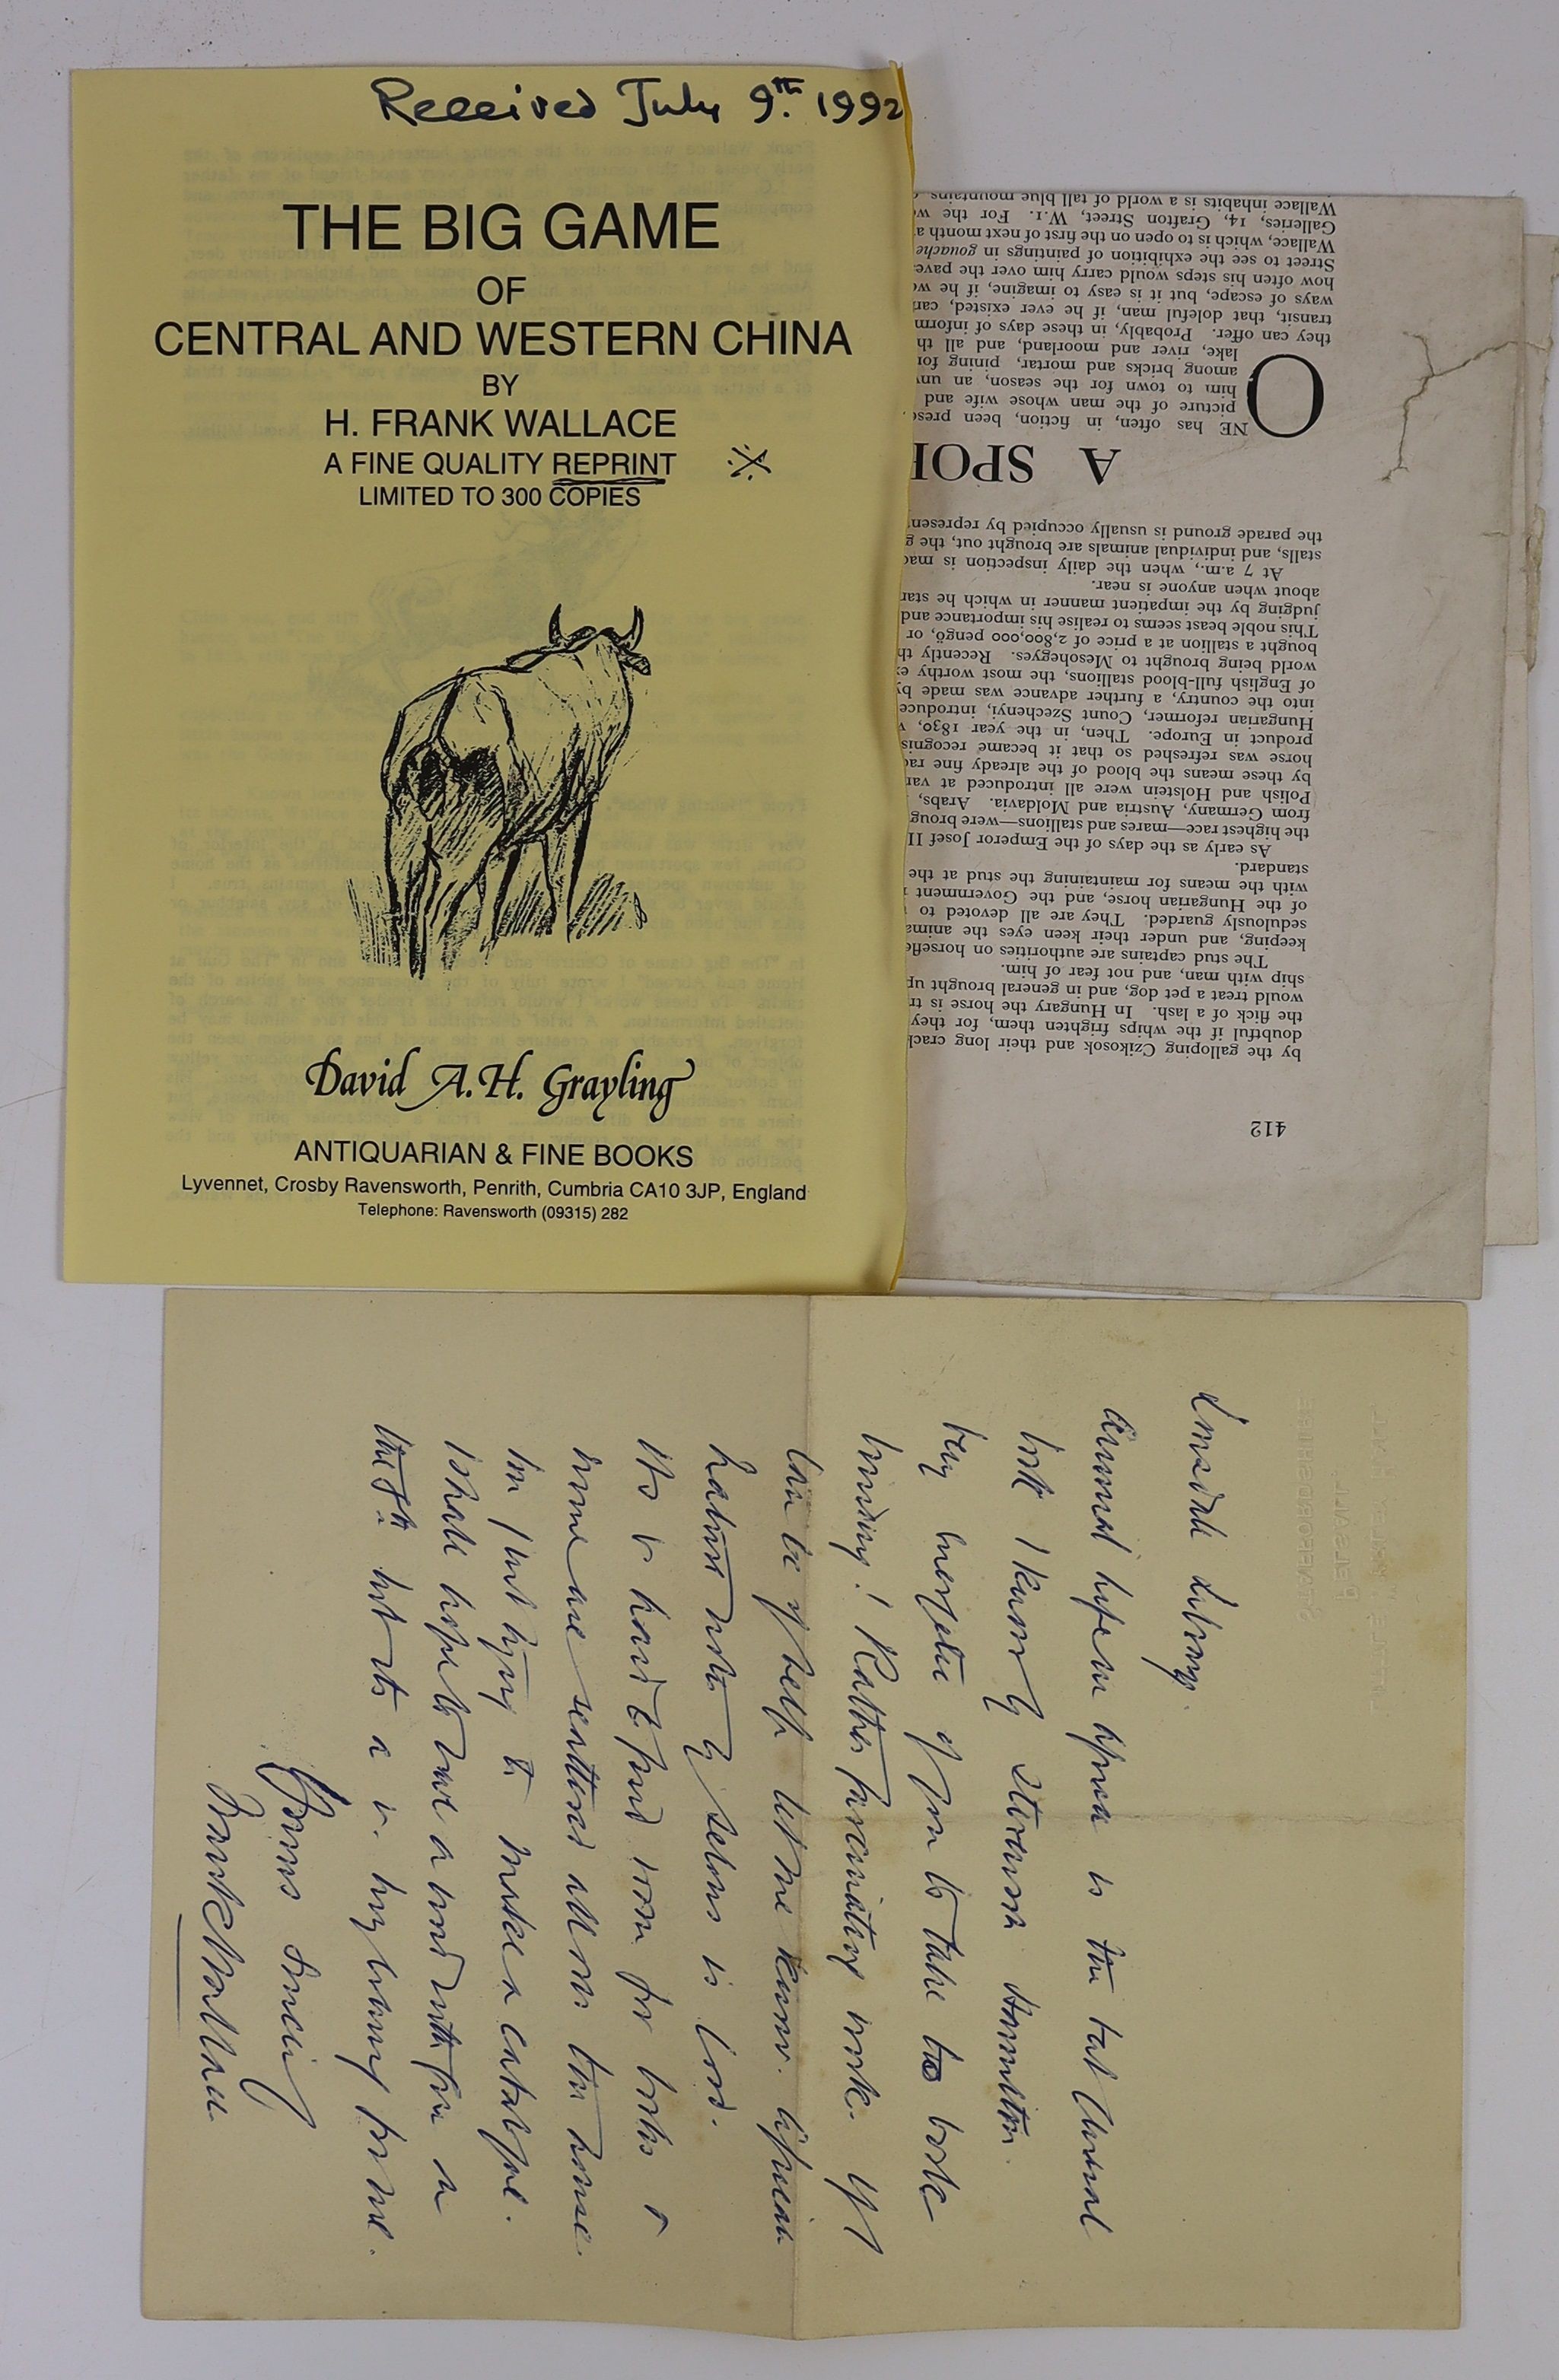 Received July 9th. 1992
THE BIG GAME
OF
CENTRAL AND WESTERN CHINA
BY
H. FRANK WALLACE
A FINE QUALITY REPRINT
LIMITED TO 300 COPIES
David A.H. Grayling
ANTIQUARIAN & FINE BOOKS
Lyvennet, Crosby Ravensworth, Penrith, Cumbria CA10 3JP, England
Telephone: Ravensworth (09315) 282
412
by the galloping Czikosok and their long
doubtful if the whips frighten them, for they
the flick of a lash. In Hungary the horse is
would treat a pet dog, and in general brought up
ship with man, and not fear of him.
The stud captains are authorities on
keeping, and under their keen eyes the
sedulously guarded. They are all devoted to
of the Hungarian horse, and the Government
with the means for maintaining the stud at the
standard.
As early as the days of the Emperor Josef II
the highest race—mares and stallions—were
from Germany, Austria and Moldavia. Arabs,
Polish and Holstein were all introduced at
by these means the blood of the already fine
horse was refreshed so that it became
product in Europe. Then, in the year 1830,
Hungarian reformer, Count Szechenyi,
into the country, a further advance was made
of English full-blood stallions, the most worthy
world being brought to Mesohegyes. Recently
bought a stallion at a price of 2,800,000 pengö, or
This noble beast seems to realise his importance and
judging by the impatient manner in which he
about when anyone is near.
At 7 a.m., when the daily inspection is
stalls, and individual animals are brought out, the
the parade ground is usually occupied by
A SPO
ONE has often, in fiction, been
picture of the man whose wife and
him to town for the season, an
among bricks and mortar, pining for
lake, river and moorland, and all
they can offer. Probably, in these days of
transit, that doleful man, if he ever existed,
ways of escape, but it is easy to imagine, if he
how often his steps would carry him over the
Street to see the exhibition of paintings in gouache
Wallace, which is to open on the first of next month
Galleries, 14, Grafton Street, W.1. For the
Wallace inhabits is a world of tall blue mountains
Lonsdale Library.
Animal life in Africa is the best animal
book I know of Stevenson Hamilton.
Very energetic of you to take to book
binding! Rather fascinating work. If I
can be of help let me know. African
Nature Notes by Selous is good.
It is hard to find room for books &
mine are scattered all over the house
but I am trying to make a catalogue.
I shall hope to have a word with you on
the 7th. but it's a v. busy time for me.
Yours sincerely
Frank Wallace